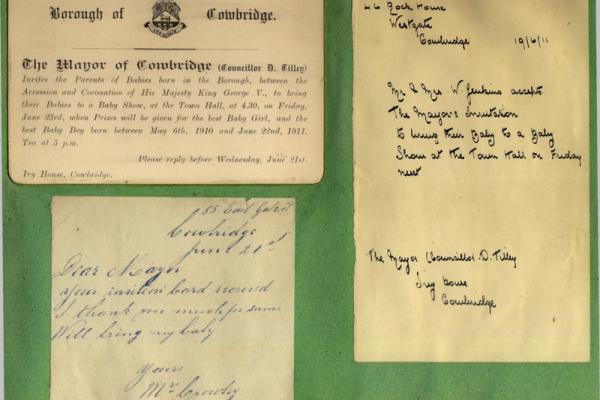 Borough of Cowbridge.
The Mayor of Cowbridge (Councillor D. Tilley)
Invites the Parents of Babies born in the Borough, between the
Accession and Coronation of His Majesty King George V., to bring
their Babies to a Baby Show, at the Town Hall, at 4.30, on Friday,
June 23rd, when Prizes will be given for the best Baby Girl, and the
best Baby Boy born between May 6th, 1910 and June 22nd, 1911.
Tea at 5 p.m.
Please reply before Wednesday, June 21st.
Ivy House, Cowbridge.
55 East Gate St
Cowbridge
June 21st
Dear Mayor
your card
I thank you much for same
Will bring my baby
Yours
Mr Crowdy
46 Rock House
Westgate
Cowbridge 19/6/11
Mr & Mrs W. Jenkins accept
The Mayor's invitation
to bring their Baby to a Baby
Show at the Town Hall on Friday
next
The Mayor (Councillor D. Tilley
Ivy House
Cowbridge